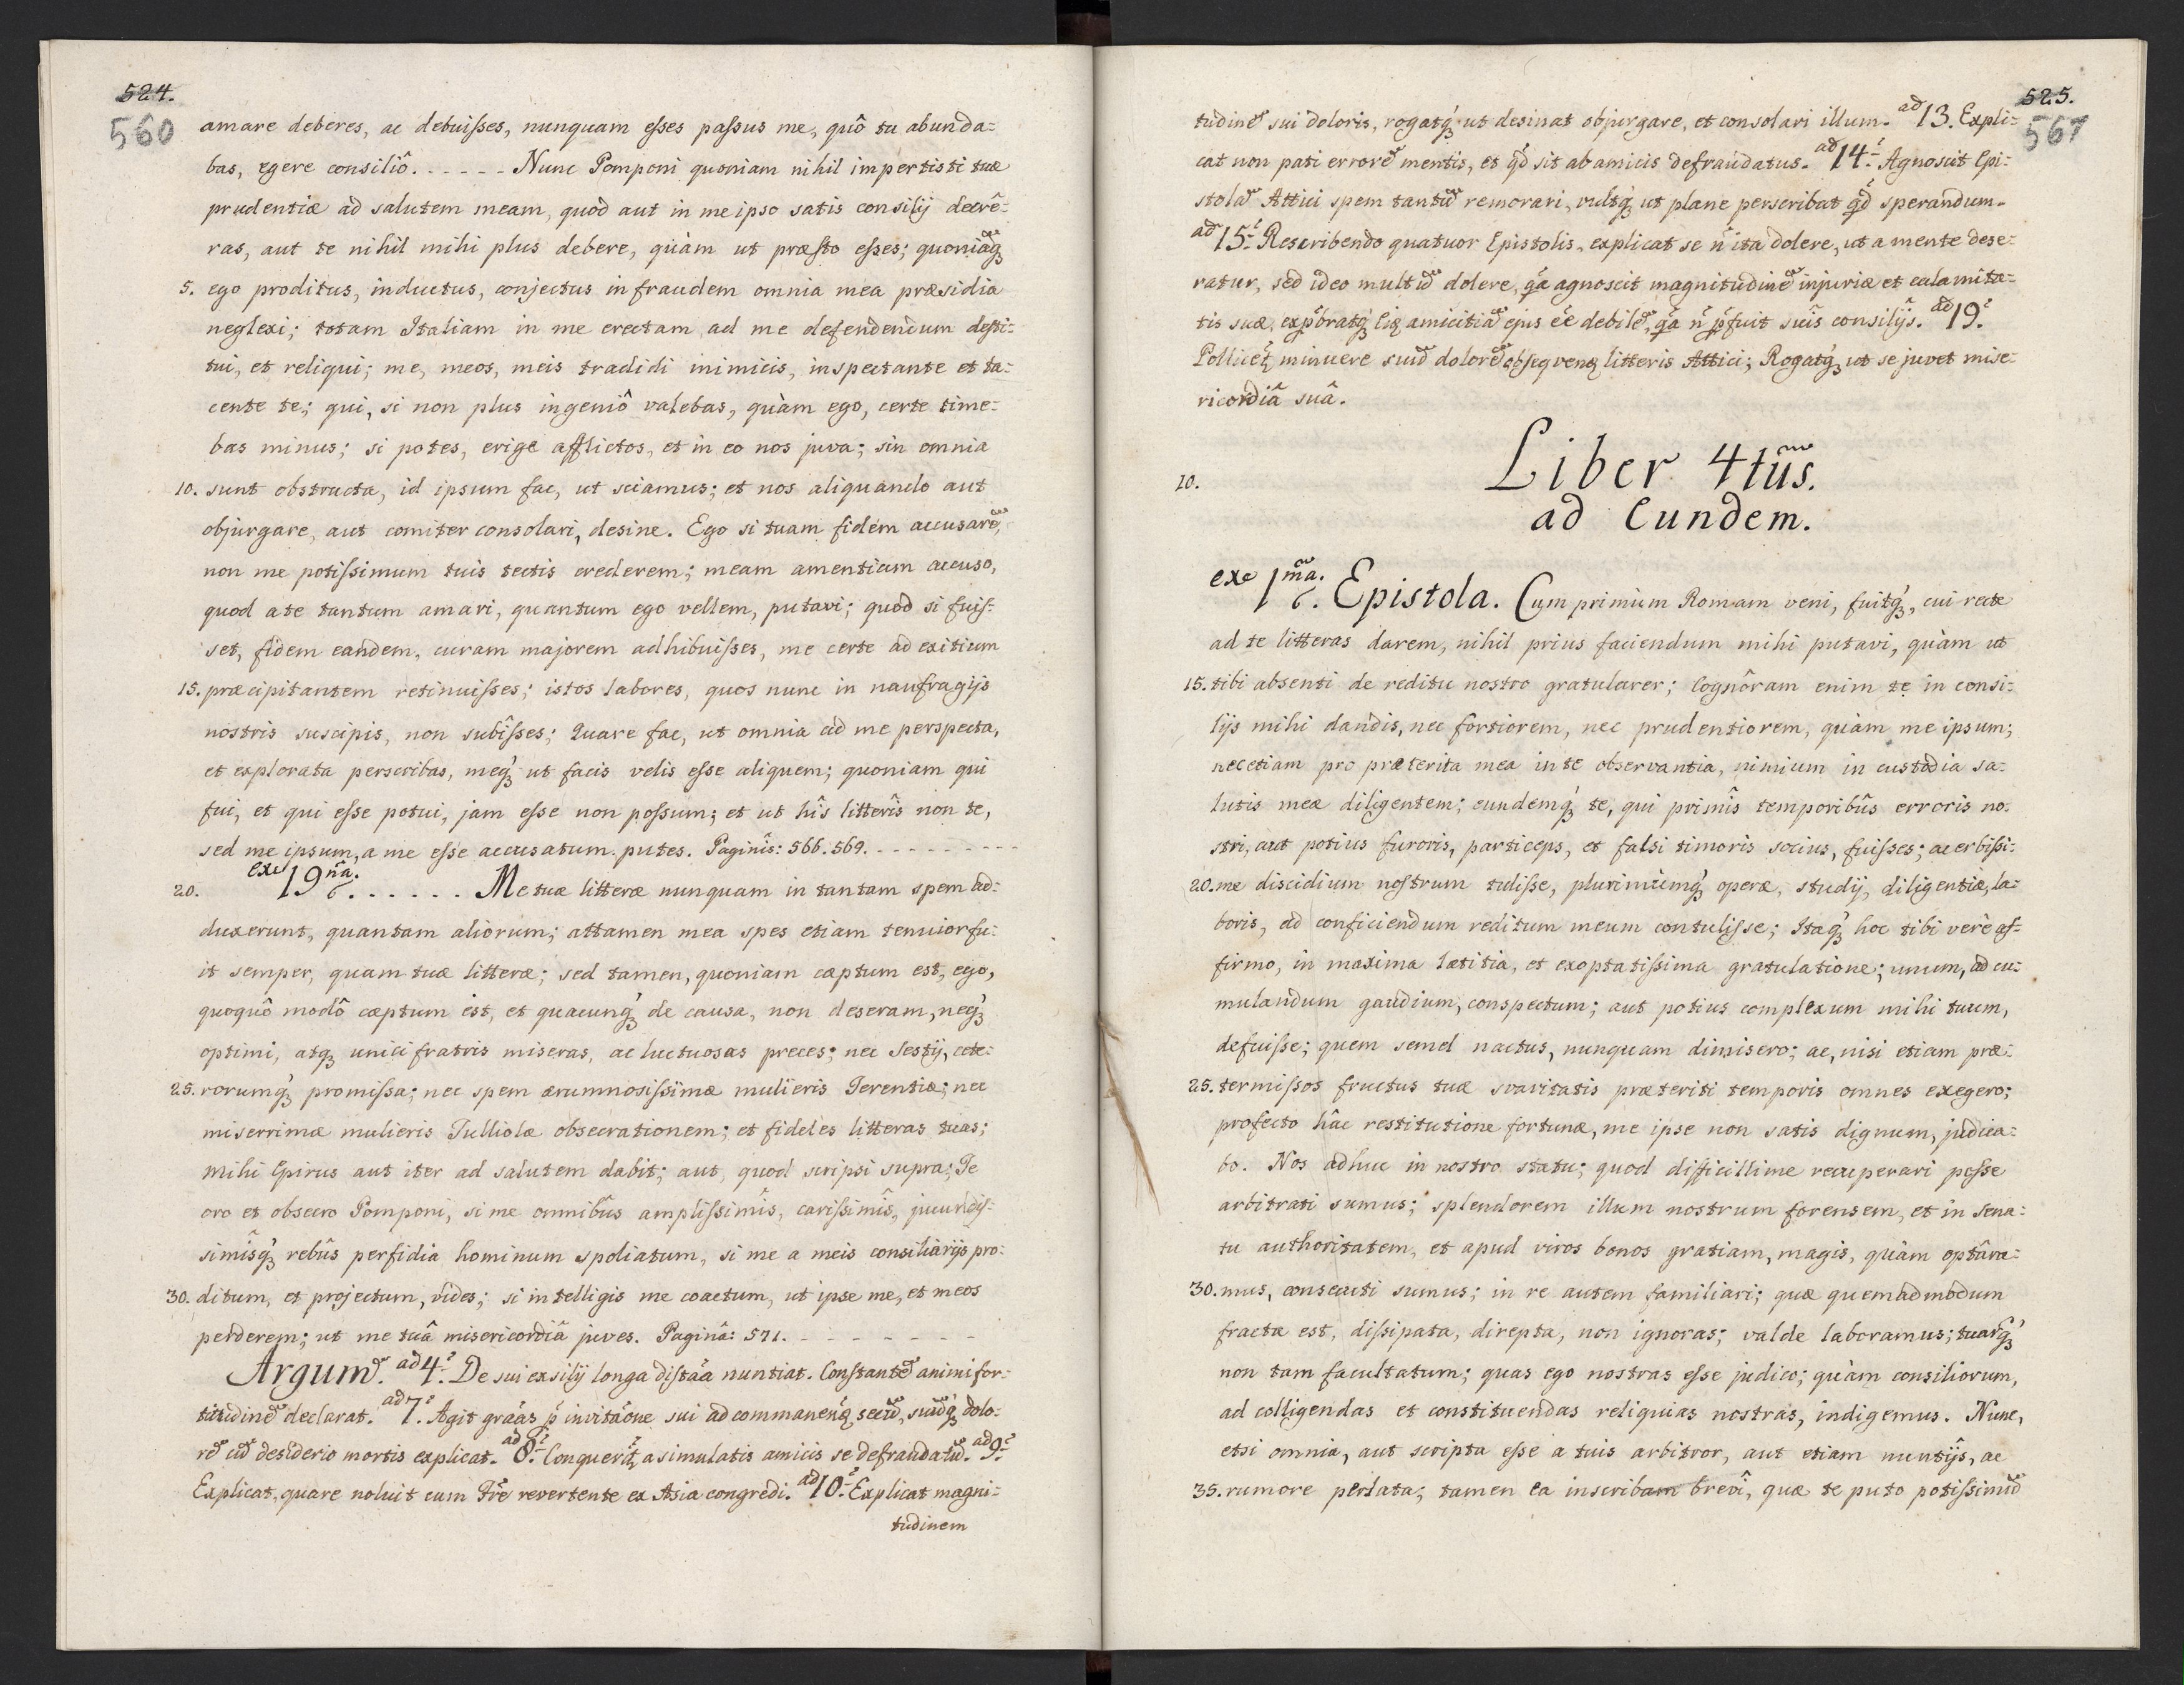 524.
560
amare deberes, ac debuißes, nunquam eßes paßus me, quô tu abunda:
bas, egere consiliô. - - - - - Nunc Pomponi quoniam nihil impertisti tuæ
prudentiæ ad salutem meam, quod aut in me ipso satis consilij decrê:
ras, aut te nihil mihi plus debere, quàm ut præsto eßes; quoniaq̃
5. ego proditus, inductus, conjectus in fraudem omnia mea præsidia
neglexi; totam Italiam in me erectam ad me defendendum desti:
tui, et reliqui; me, meos, meis tradidi inimicis, inspectante et ta:
cente te; qui, si non plus ingeniô valebas, quàm ego, certe time:
bas minus; si potes, erige afflictos, et in eo nos juva; sin omnia
10. sunt obstructa, id ipsum fac, ut sciamus; et nos aliquando aut
objurgare, aut comiter consolari, desine. Ego si tuam fidem accusarẽ,
non me potißimum tuis tectis crederem; meam amentiam accuso,
quod a te tantum amari, quantum ego vellem, putavi; quod si fuis:
set, fidem eandem, curam majorem adhibuißes, me certe ad exitium
15. præcipitantem retinuißes; istos labores, quos nunc in naufragijs
nostris suscipis, non subîßes; Quare fac, ut omnia ad me perspecta,
et explorata perscribas, meq́ʒ ut facis velis eße aliquem; quoniam qui
fui, et qui eße potui, jam eße non poßum; et ut hîs litterîs non te,
sed me ipsum, a me eße accusatum putes. Paginîs: 566. 569. - - - - - - - - -
20. ex 19nã. . . . . . . Me tuæ litteræ nunquam in tantam spem ad:
duxerunt, quantam aliorum; attamen mea spes etiam tenuior fu:
it semper, quam tuæ litteræ; sed tamen, quoniam cæptum est, ego,
quoquô modô cæptum est, et quacunq́ʒ de causa, non deseram, neq́ʒ
optimi, atqʒ unici fratris miseras, ac luctuosas preces; nec Sestij, cete:
25. rorumq́ʒ promißa; nec spem ærumnosißimæ mulieris Terentiæ; nec
miserrimæ mulieris Tulliolæ obsecrationem; et fideles litteras tuas;
mihi Epirus aut iter ad salutem dabit; aut, quod scripsi supra; Te
oro et obsecro Pomponi, si me omnibûs amplißimîs, carißimîs, jucundis:
simîsq́ʒ rebûs perfidia hominum spoliatum, si me a meis consiliarijs pro:
30. ditum, et projectum, vides; si intelligis me coactum, ut ipse me, et meos
perderem; ut me tuâ misericordiâ juves. Paginâ: 571. - - - - - - -
Argumẽ. ad 4. De sui exsilij longa distãa nuntiat. Constantẽ animi for:
titudinẽ declarat. ad 7. Agit grãas p invitãone sui ad commanenq̃ secũ, suũq́ʒ dolo:
rẽ cũ desiderio mortis explicat. ad 8. Conquerit̃ a simulatis amicis se defraudatũ. ad 9.
Explicat, quare noluit cum Frẽ revertente ex Asia congredi. ad 10. Explicat magni:
tudinem
525.
567
tudinẽ sui doloris, rogatq́ʒ ut desinat objurgare, et consolari illum. ad 13. Expli:
cat non pati errorẽ mentis, et q̃d sit ab amicis defraudatus. ad 14. Agnoscit Epi:
stolã Attici spem tantũ remorari, vultq́ʒ ut plane perscribat q̃d sperandum.
ad 15. Rescribendo quatuor Epistolis, explicat se ñ ita dolere, ut a mente dese:
ratur, sed ideo multũ dolere, q̃a agnoscit magnitudinẽ injuriæ et calamita:
tis suæ, expbratq́ʒ amicitiã ejus ẽe debilẽ, q̃a ñ p̃fuit suîs consilijs. ad 19.
Pollicet̃ minuere suũ dolorẽ litteris Attici; Rogatq́ʒ ut se juvet mise:
ricordiâ suâ.
10. Liber 4tûs.
ad Eundem.
ex 1mã. Epistola. Cum primùm Romam veni, fuitq́ʒ, cui recte
ad te litteras darem, nihil prius faciendum mihi putavi, quàm ut
15. tibi absenti de reditu nostro gratularer; Cognôram enim te in consi:
lijs mihi dandis, nec fortiorem, nec prudentiorem, quàm me ipsum;
nec etiam pro præterita mea in te observantia, nimium in custodia sa:
lutis meæ diligentem; eundemq́ʒ te, qui primîs temporibûs erroris no:
stri, aut potius furoris, particeps, et falsi timoris socius, fuißes; acerbißi:
20. me discidium nostrum tulisse, plurimùmq́ʒ operæ, studij, diligentiæ, la:
boris, ad conficiendum reditum meum contulisse; Itaq́ʒ hoc tibi verè af:
firmo, in maxima lætitia, et exoptatißima gratulatione; unum, ad cu:
mulandum gaudium, conspectum; aut potius complexum mihi tuum,
defuiße; quem semel nactus, nunquam dimisero; ac, nisi etiam præ:
25. termißos fructus tuæ svavitatis præteriti temporis omnes exegero;
profecto hâc restitutione fortunæ, me ipse non satis dignum, judica:
bo. Nos adhuc in nostro statu; quod difficillime recuperari poße
arbitrati sumus; splendorem illum nostrum forensem, et in Sena:
tu authoritatem, et apud viros bonos gratiam, magis, quàm optâra:
30. mus, consecuti sumus; in re autem familiari; quæ quemadmodum
fracta est, dißipata, direpta, non ignoras; valde laboramus; tuarq́ʒ
non tam facultatum; quas ego nostras eße judico; quàm consiliorum,
ad colligendas et constituendas reliquias nostras, indigemus. Nunc,
etsi omnia, aut scripta eße a tuis arbitror, aut etiam nuntijs, ac
35. rumore perlata; tamen ea inscribam brevî, quæ te puto potißimũ